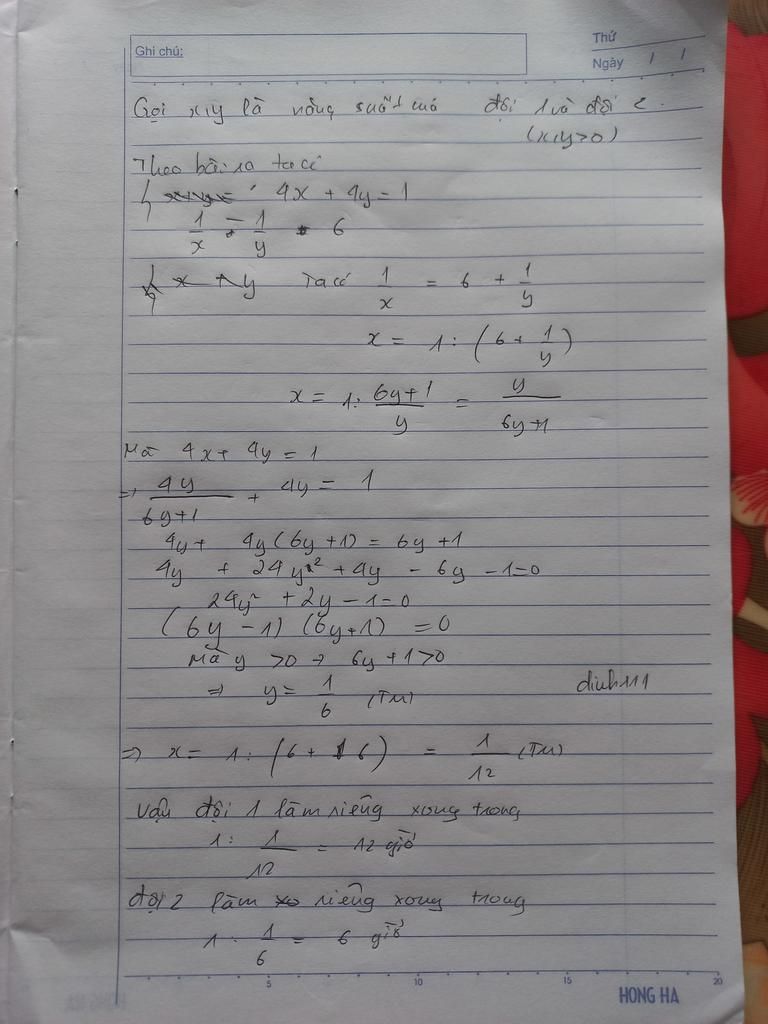 Ghi chú:
Thứ
Ngày / /
Gọi x,y là năng suất của đội 1 và đội 2.
(x,y>0)
Theo bài ra ta có
4x + 4y = 1
1/x - 1/y = 6
Ta có 1/x = 6 + 1/y
x = 1 : (6 + 1/y)
x = 1 : (6y+1)/y = y/(6y+1)
Mà 4x + 4y = 1
=> 4y/(6y+1) + 4y = 1
4y + 4y(6y+1) = 6y+1
4y + 24y² + 4y - 6y - 1=0
24y² + 2y - 1=0
(6y - 1) (6y+1) = 0
Mà y >0 → 6y+1>0
=> y = 1/6 (TM)
dinh111
=> x = 1 : (6 + 6) = 1/12 (TM)
Vậy đội 1 làm riêng xong trong
1 : 1/12 = 12 giờ
đội 2 làm riêng xong trong
1 : 1/6 = 6 giờ
5 10 15 20
HONG HA